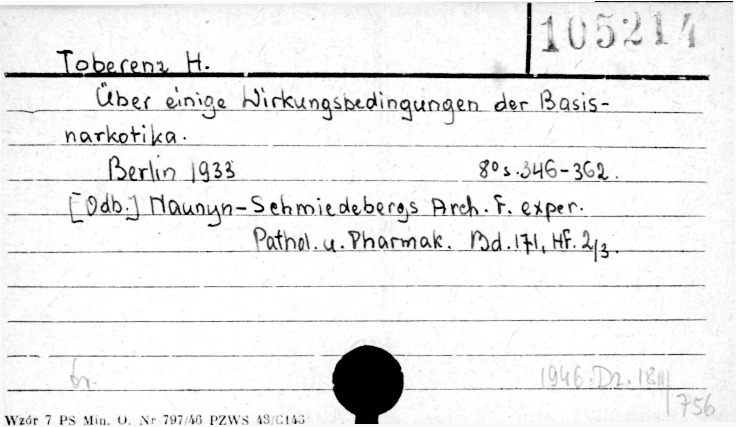 105214
Toberenz H.
Über einige Wirkungsbedingungen der Basis-
narkotika.
Berlin 1933 8º s. 346-362.
[Odb.] Naunyn-Schmiedebergs Arch. f. exper.
Pathol. u. Pharmak. Bd. 171, Hf. 2/3.
br. 1946. Dz. 18
756
Wzór 7 PS Min. O. Nr 797/46 PZWS 43/C146